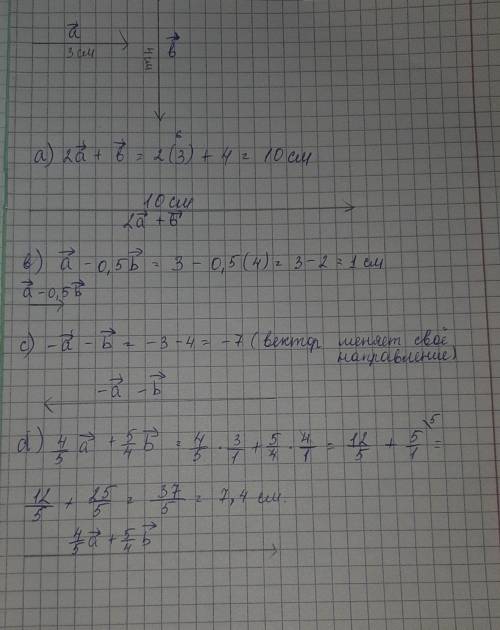 a⃗
3 см
4 см
b⃗
6
a) 2a⃗ + b⃗ = 2(3) + 4 = 10 см
10 см
2a⃗ + b⃗
в) a⃗ - 0,5b⃗ = 3 - 0,5(4) = 3 - 2 = 1 см
a⃗ - 0,5b⃗
c) -a⃗ - b⃗ = -3 - 4 = -7 (вектор меняет своё
направление)
-a⃗ - b⃗
d) 4/5 a⃗ + 5/4 b⃗ = 4/5 · 3/1 + 5/4 · 4/1 = 12/5 + 5/1 \5 =
12/5 + 25/5 = 37/5 = 7,4 см.
4/5 a⃗ + 5/4 b⃗